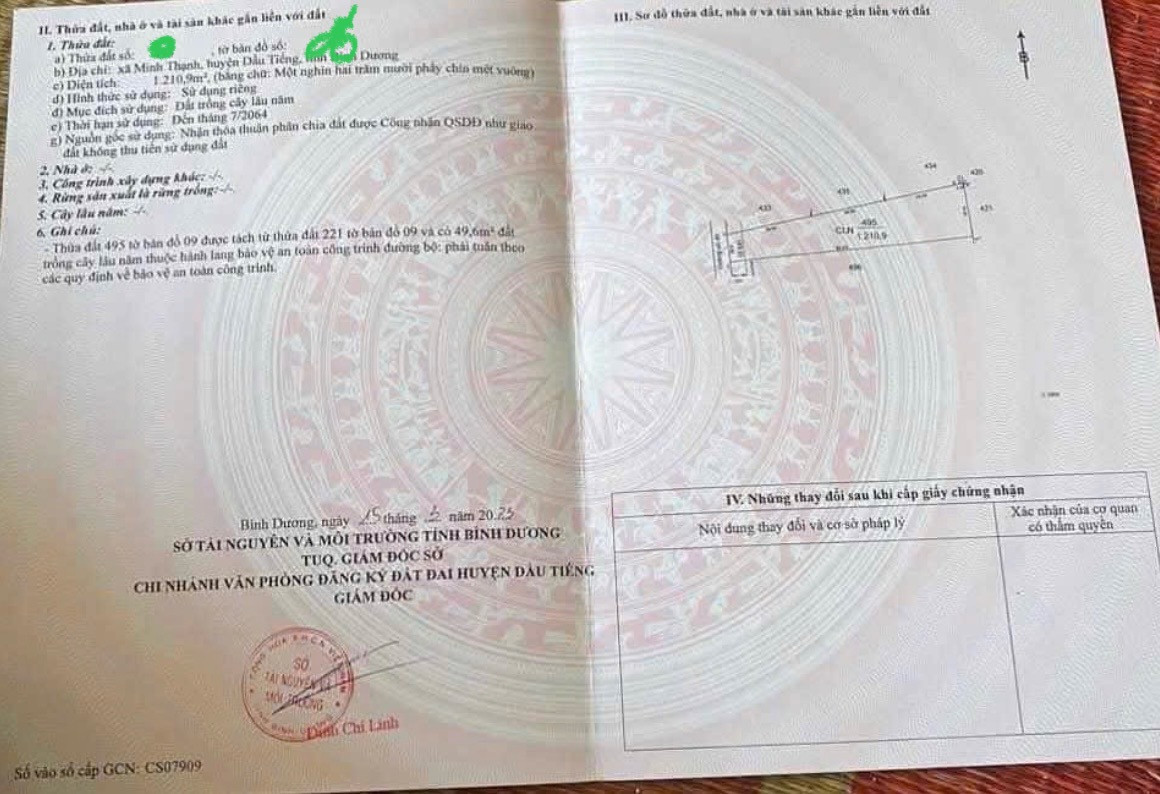 II. Thửa đất, nhà ở và tài sản khác gắn liền với đất
1. Thửa đất:
a) Thửa đất số: , tờ bản đồ số:
b) Địa chỉ: xã Minh Thạnh, huyện Dầu Tiếng, Dương
c) Diện tích: 1.210,9m², (bằng chữ: Một nghìn hai trăm mười phẩy chín mét vuông)
d) Hình thức sử dụng: Sử dụng riêng
đ) Mục đích sử dụng: Đất trồng cây lâu năm
e) Thời hạn sử dụng: Đến tháng 7/2064
g) Nguồn gốc sử dụng: Nhận thỏa thuận phân chia đất được Công nhận QSDĐ như giao
đất không thu tiền sử dụng đất
2. Nhà ở: -/-.
3. Công trình xây dựng khác: -/-.
4. Rừng sản xuất là rừng trồng: -/-.
5. Cây lâu năm: -/-.
6. Ghi chú:
- Thửa đất 495 tờ bản đồ 09 được tách từ thửa đất 221 tờ bản đồ 09 và có 49,6m² đất
trồng cây lâu năm thuộc hành lang bảo vệ an toàn công trình đường bộ: phải tuân theo
các quy định về bảo vệ an toàn công trình.
Bình Dương, ngày 15 tháng 2 năm 2023
SỞ TÀI NGUYÊN VÀ MÔI TRƯỜNG TỈNH BÌNH DƯƠNG
TUQ. GIÁM ĐỐC SỞ
CHI NHÁNH VĂN PHÒNG ĐĂNG KÝ ĐẤT ĐAI HUYỆN DẦU TIẾNG
GIÁM ĐỐC
SỞ
TÀI NGUYÊN VÀ
MÔI TRƯỜNG
Đinh Chí Linh
Số vào sổ cấp GCN: CS07909
III. Sơ đồ thửa đất, nhà ở và tài sản khác gắn liền với đất
434
435
433
421
495
CLN
1.210,9
496
IV. Những thay đổi sau khi cấp giấy chứng nhận
Nội dung thay đổi và cơ sở pháp lý
Xác nhận của cơ quan
có thẩm quyền